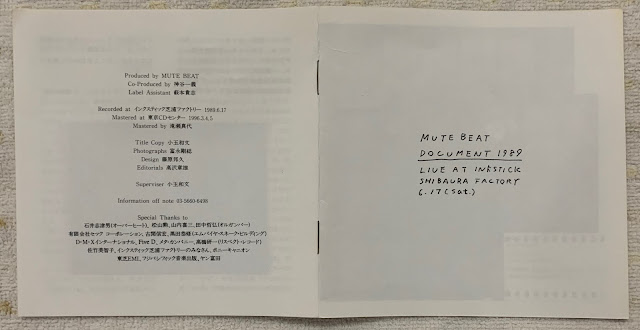 Produced by MUTE BEAT
Co-Produced by 神谷一義
Label Assistant 萩本貴志
Recorded at インクスティック芝浦ファクトリー 1989.6.17
Mastered at 東京CDセンター 1996.3.4,5
Mastered by 滝瀬真代
Title Copy 小玉和文
Photographs 富永剛総
Design 藤原邦久
Editorials 高沢東雄
Superviser 小玉和文
Information off note 03-5660-8498
Special Thanks to
石井志津男(オーバーヒート)、松山勲、山内喜三、田中哲弘(オルガンバー)
有限会社セック コーポレーション、古閑信宏、黒田恭雄(エムパイヤ・スネーク・ビルディング)
D・M・Xインターナショナル、Five D、メタ・カンパニー、高橋研一(リスペクト・レコード)
佐竹美智子、インクスティック芝浦ファクトリーのみなさん、ポニーキャニオン
東芝EMI、フジパシフィック音楽出版、ヤン富田
MUTE BEAT
DOCUMENT 1989
LIVE AT INKSTICK
SHIBAURA FACTORY
6.17(Sat.)